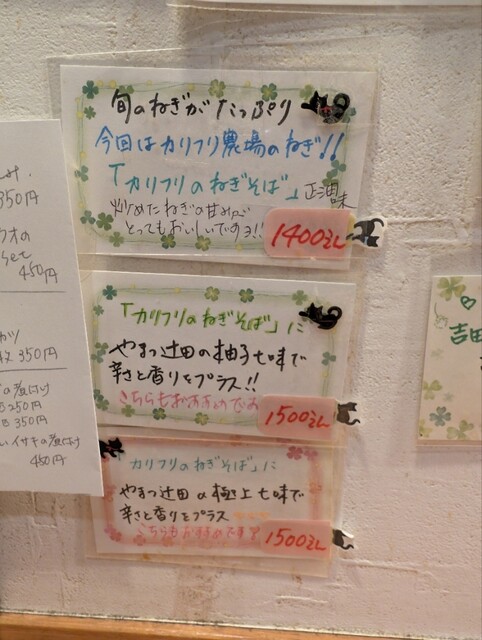 旬のねぎがたっぷり
今回はカリフリ農場のねぎ!!
「カリフリのねぎそば」正油味
炒めたねぎの甘みが
とってもおいしいでのヨ!!
1400えん
「カリフリのねぎそば」に
やまつ辻田の柚子七味で
辛さと香りをプラス!!
こちらもおすすめです
1500えん
「カリフリのねぎそば」に
やまつ辻田の極上七味で
辛さと香りをプラス
こちらもおすすめです
1500えん
350円
ウオの
set
450円
350円
の煮付け
250円
350円
イサキの煮付け
450円
吉田